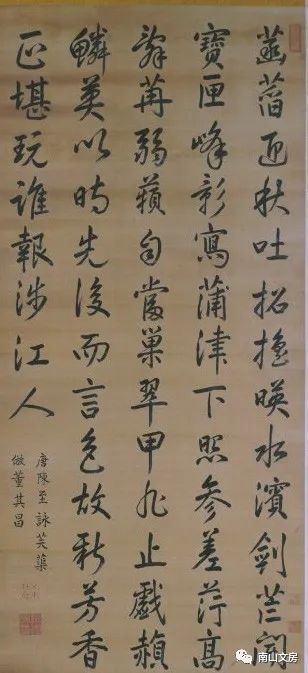 菡萏迎秋吐招摇暎水濱劍芒開
寶匣峰影寫蒲津下照參差荇高
辭苒弱蘋自當巢翠甲非止戲赬
鱗莫以時先後而言色故新芳香
正堪玩誰報涉江人
唐陳至詠芙蕖
倣董其昌
南山文房